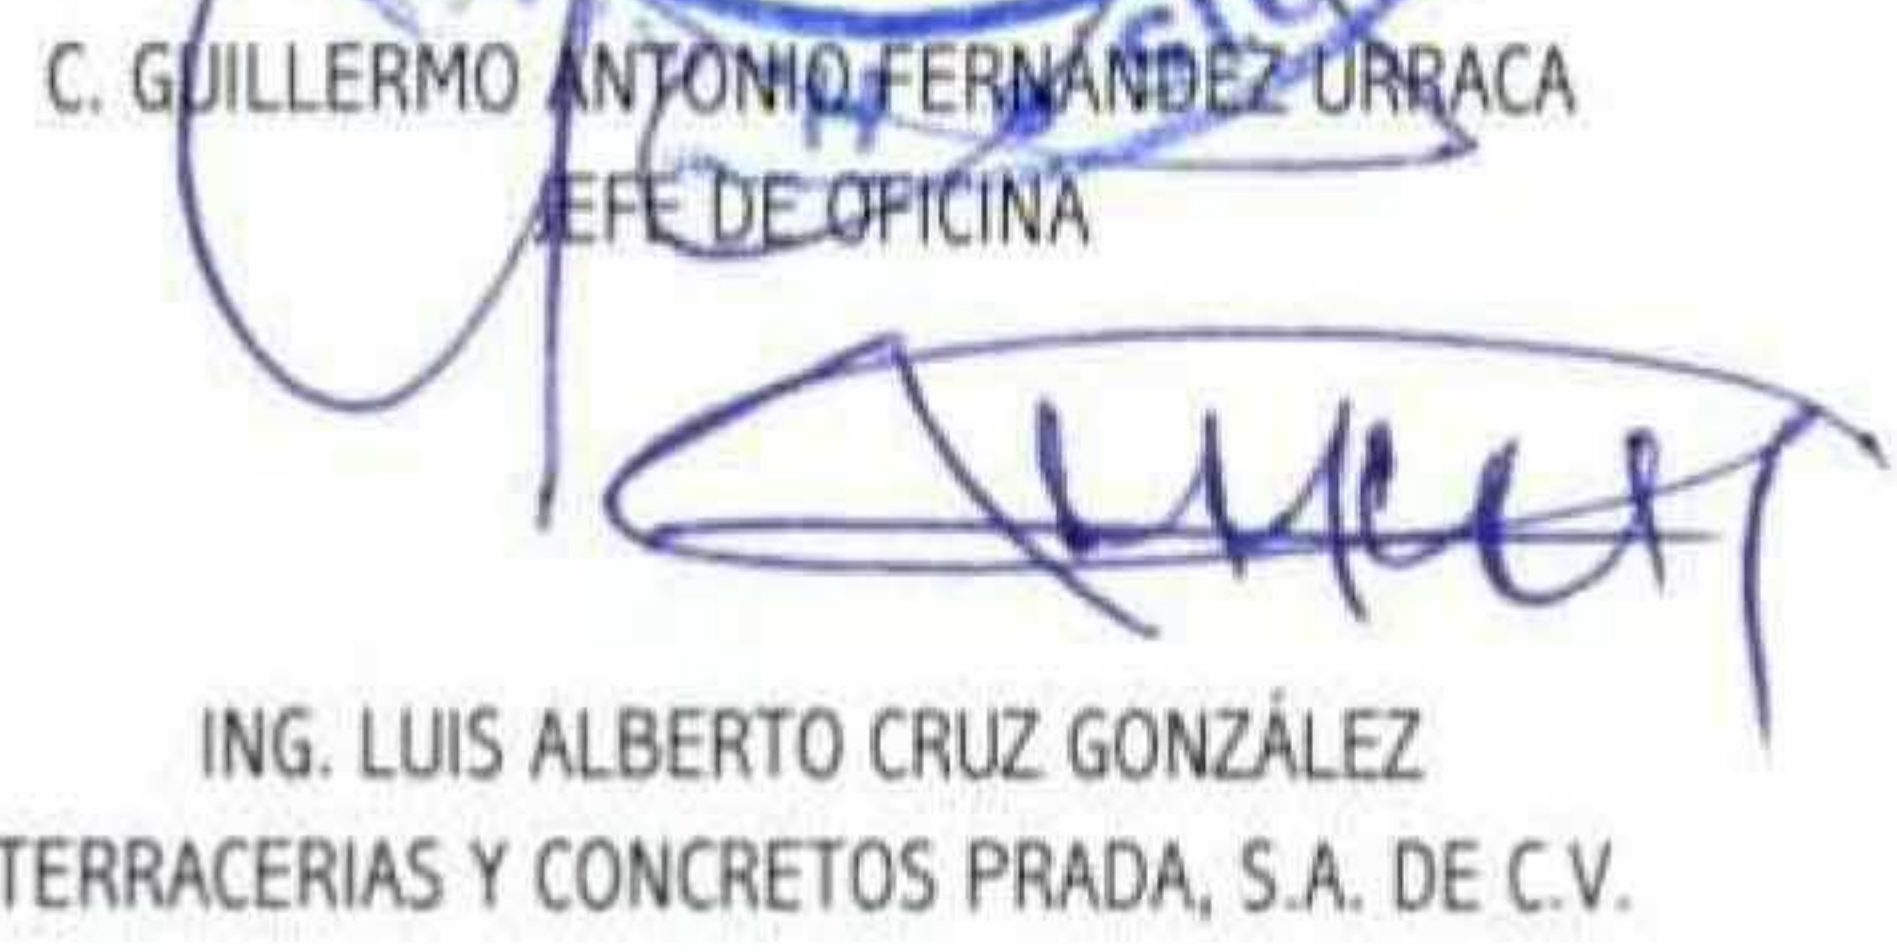 C. GUILLERMO ANTONIO FERNÁNDEZ URRACA
JEFE DE OFICINA
ING. LUIS ALBERTO CRUZ GONZÁLEZ
TERRACERIAS Y CONCRETOS PRADA, S.A. DE C.V.